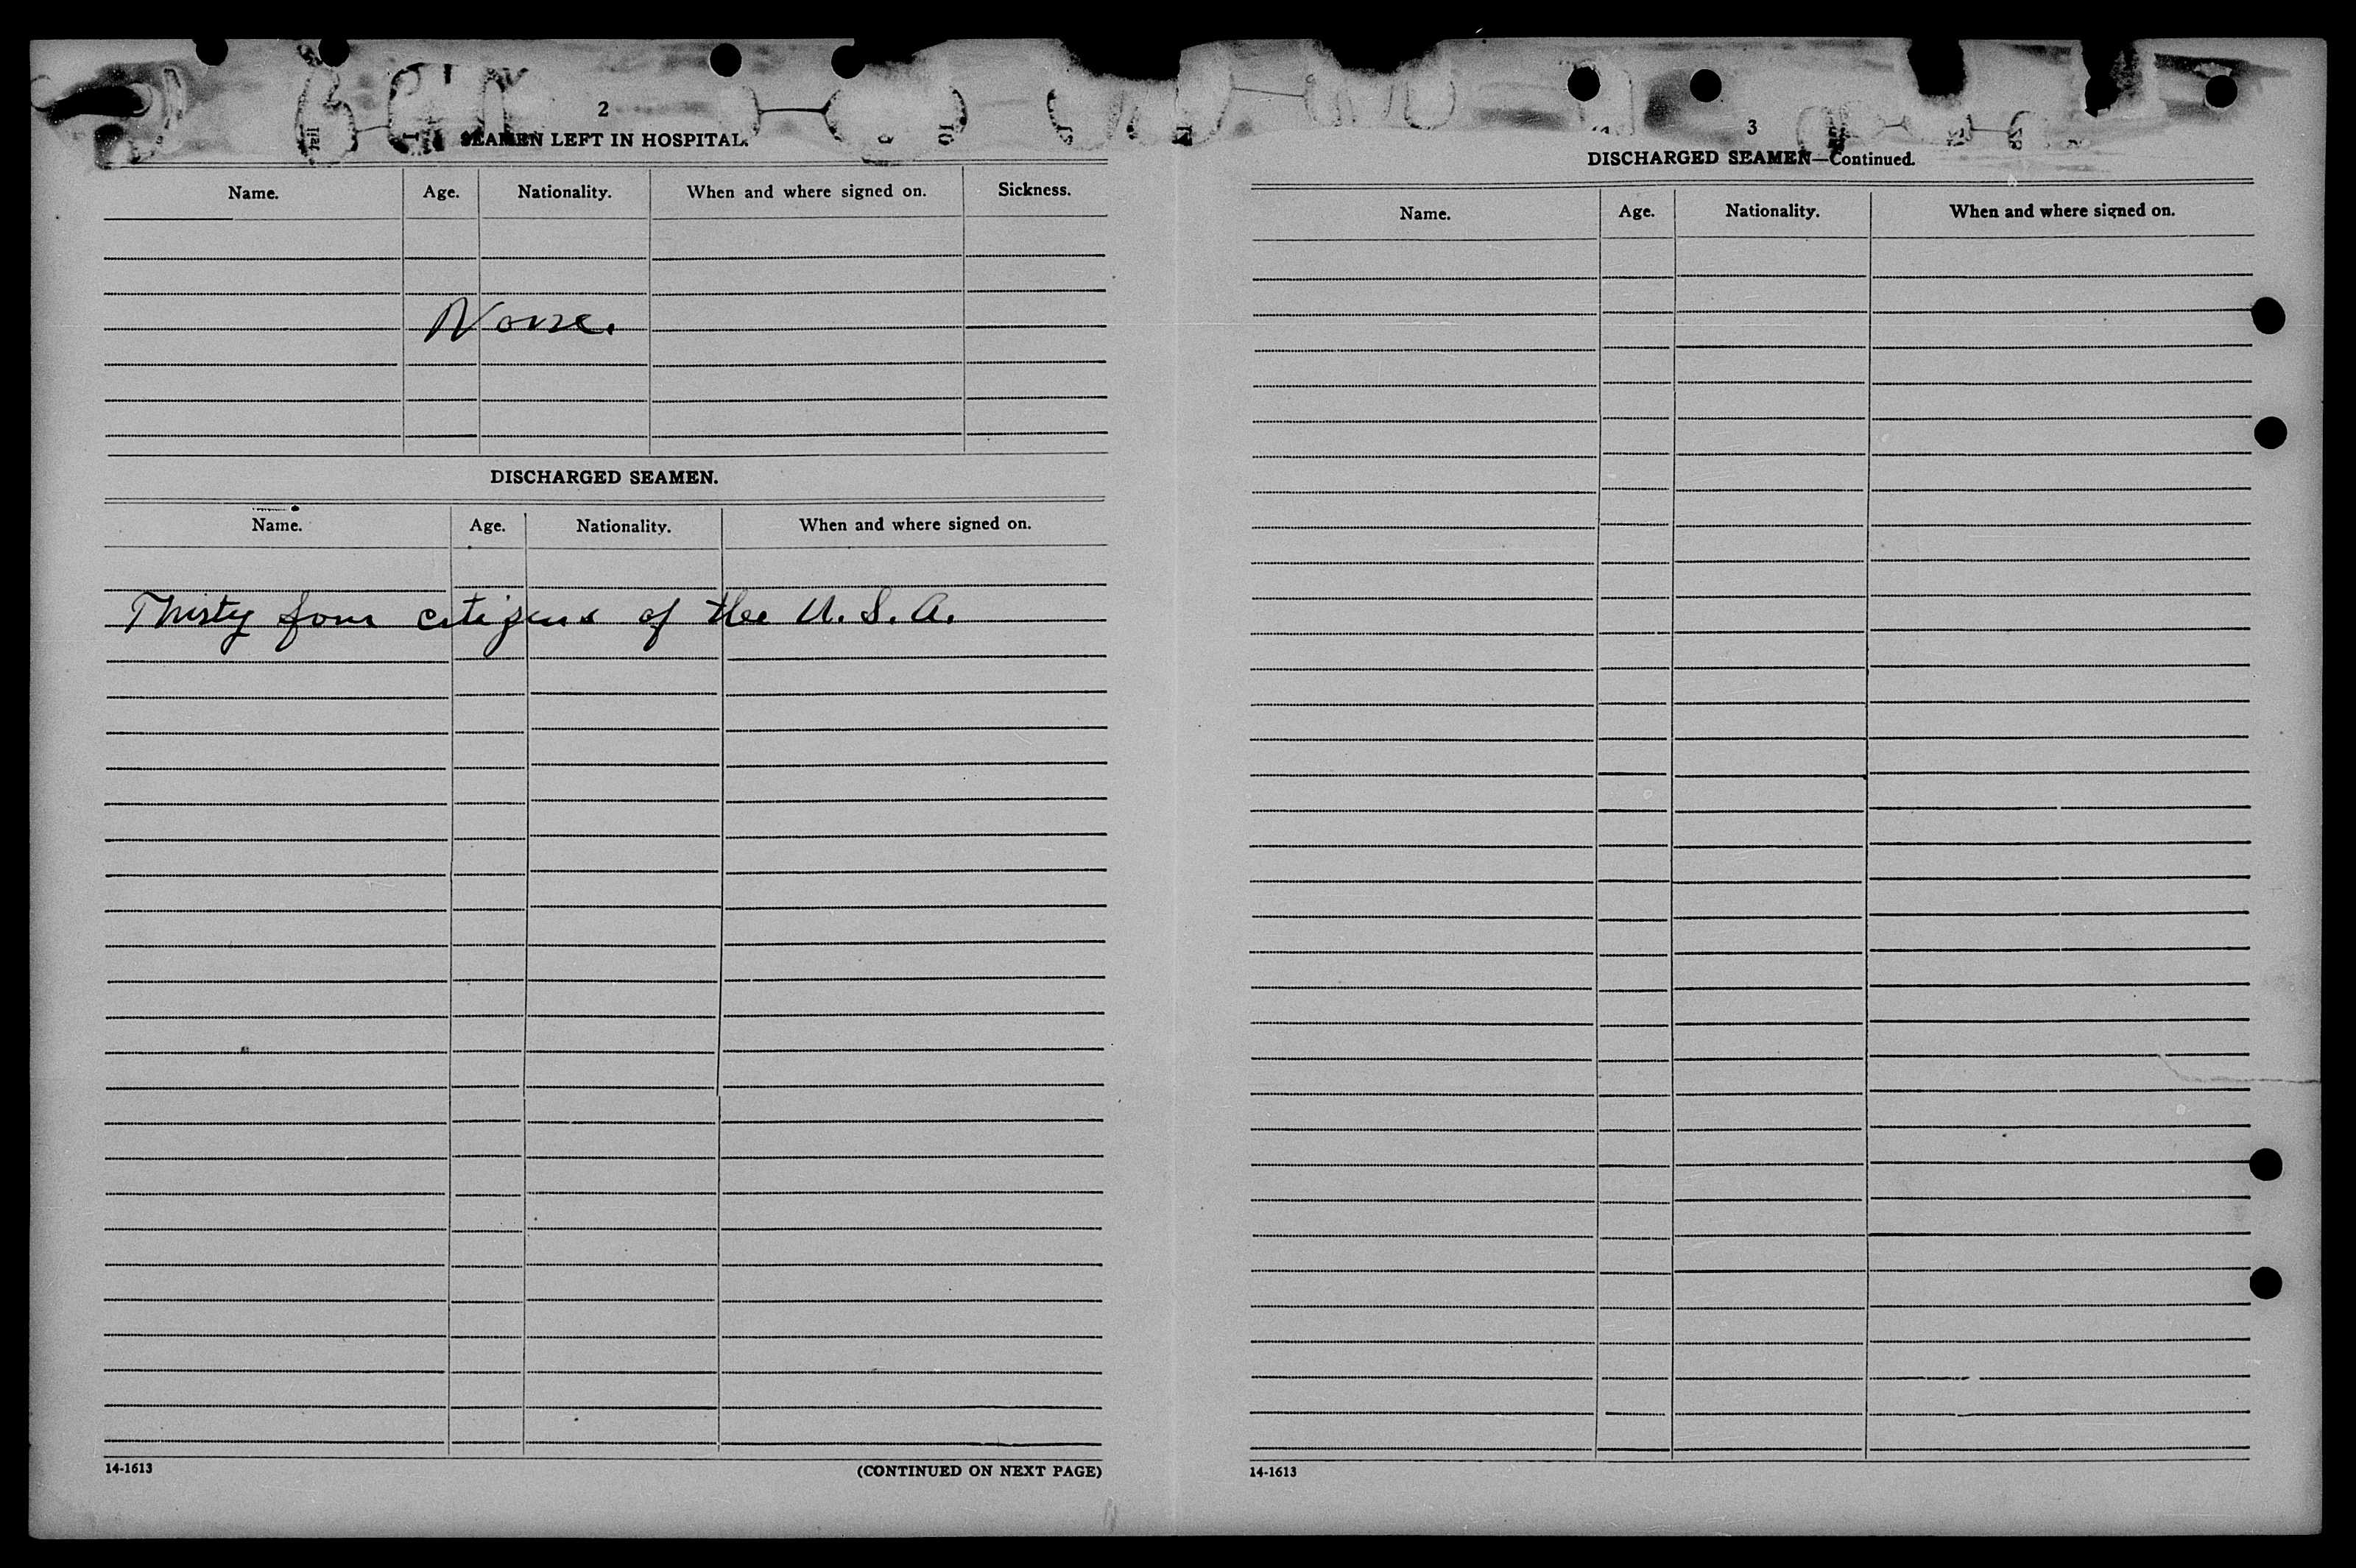 2
SEAMEN LEFT IN HOSPITAL.
Name. Age. Nationality. When and where signed on. Sickness.
None.
DISCHARGED SEAMEN.
Name. Age. Nationality. When and where signed on.
Thirty four citizens of the U.S.A.
14-1613 (CONTINUED ON NEXT PAGE)
3
DISCHARGED SEAMEN—Continued.
Name. Age. Nationality. When and where signed on.
14-1613